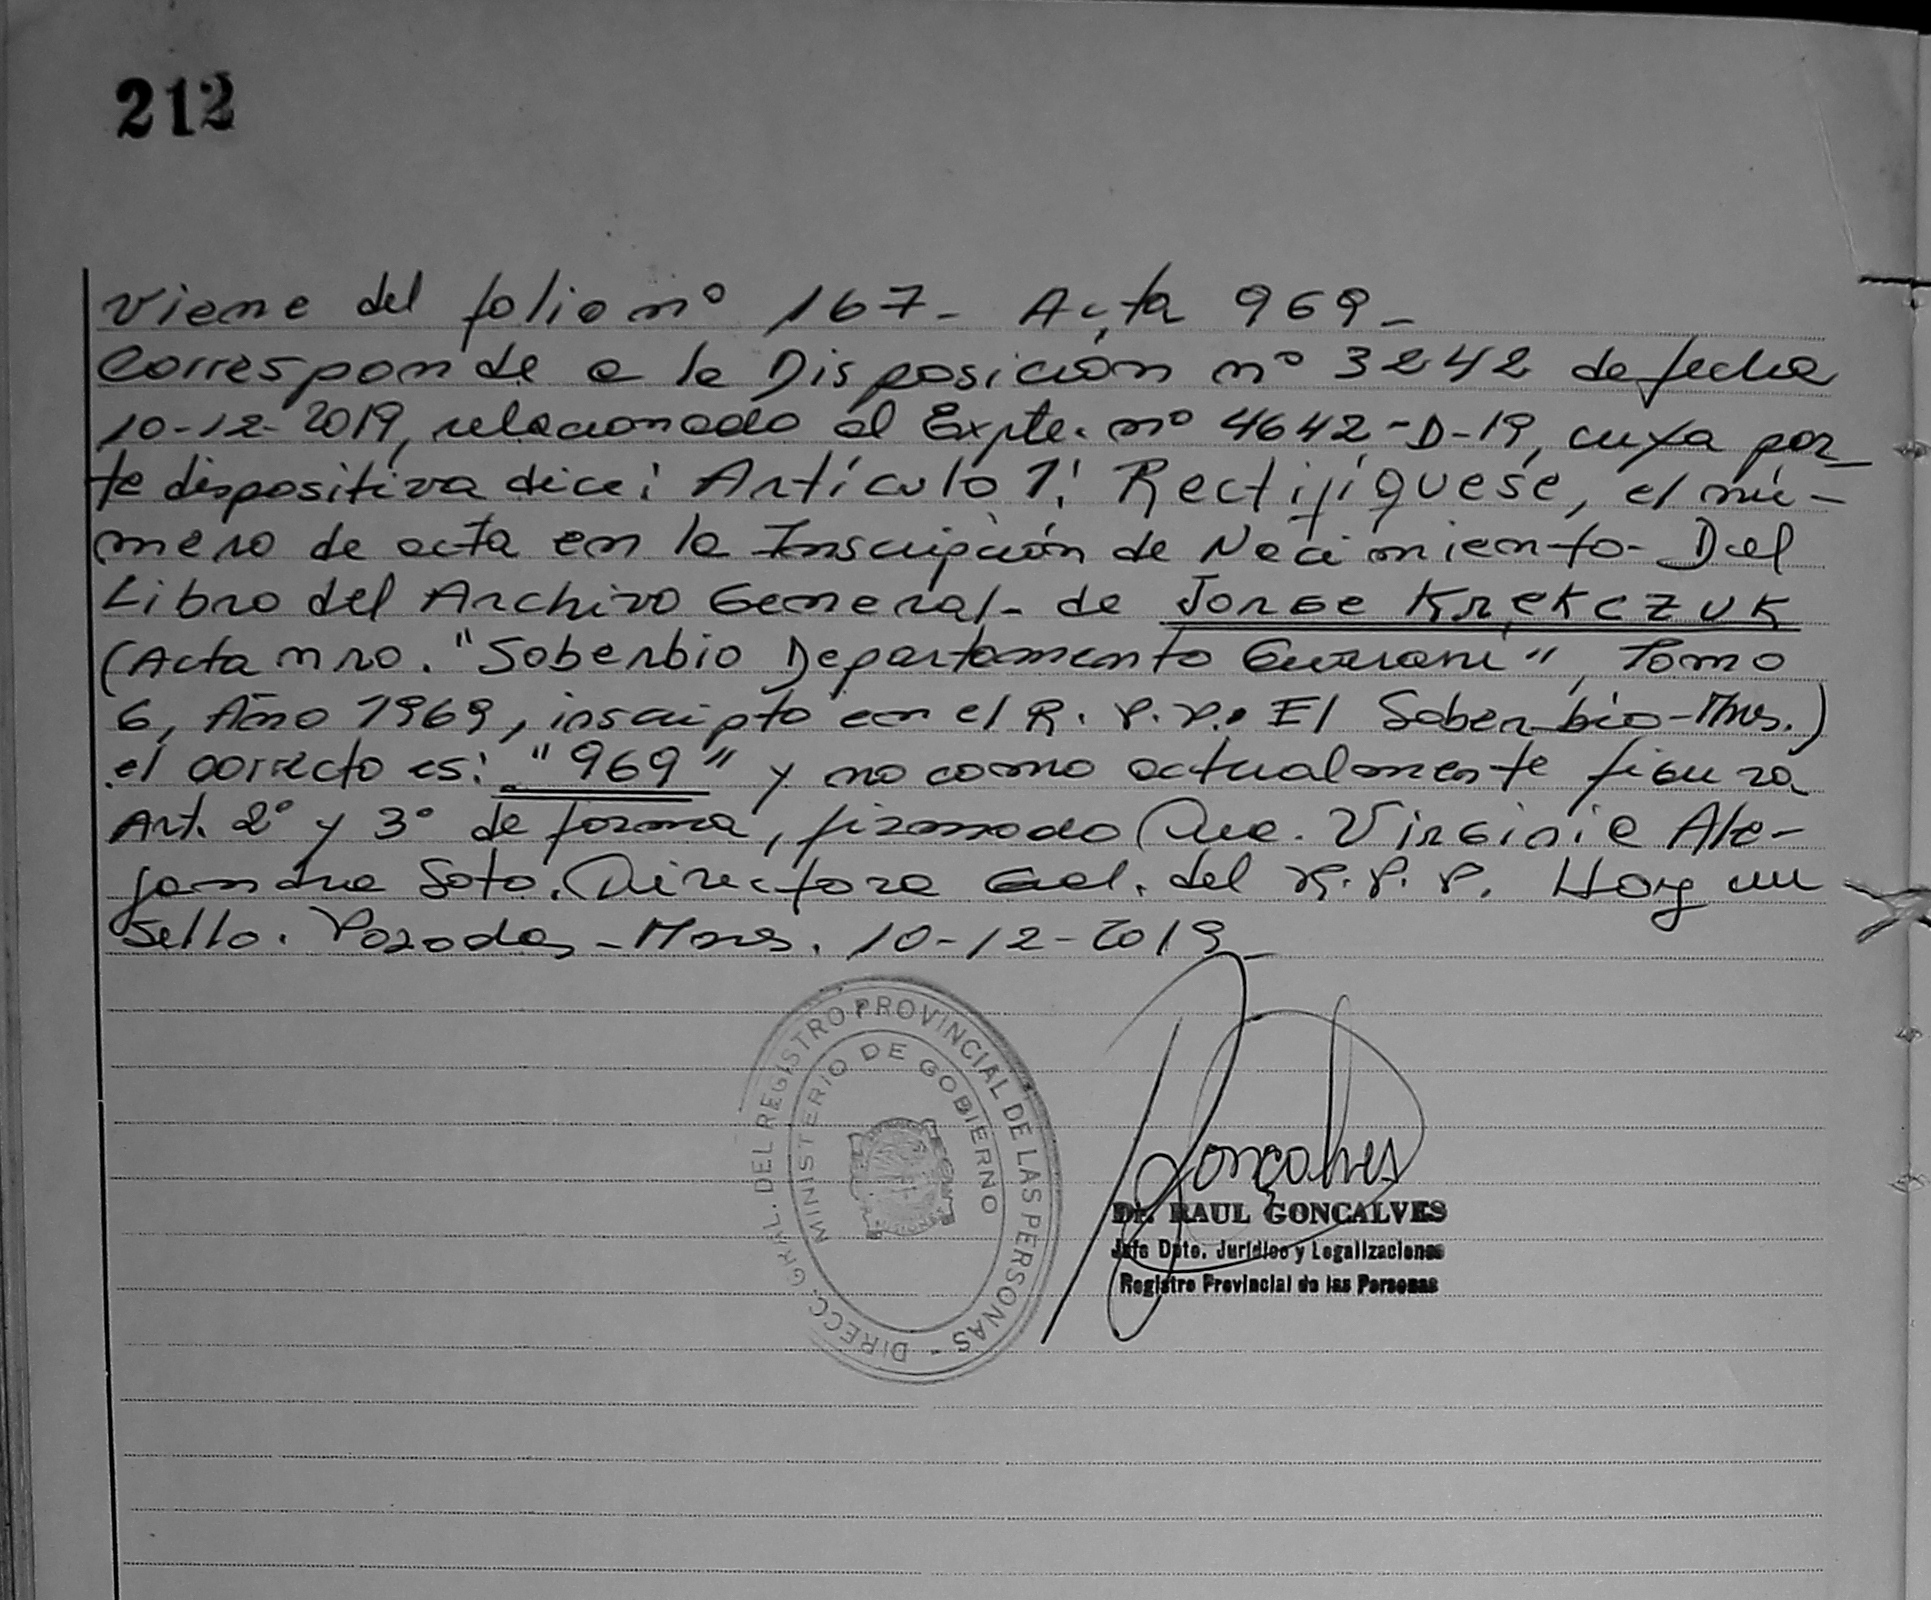 212
Viene del folio nº 167- Acta 969-
Corresponde a la Disposición nº 3242 de fecha
10-12-2019, relacionado al Expte. nº 4642-D-19, cuya par-
te dispositiva dice: Artículo 1: Rectifíquese, el nú-
mero de acta en la Inscripción de Nacimiento- Del
Libro del Archivo General- de Jorge Krekczuk
(Acta nro. "Soberbio Departamento Guaraní", Tomo
6, Año 1969, inscripto en el R.P.P. El Soberbio-Mnes.)
el correcto es: "969" y no como actualmente figura
Art. 2º y 3º de forma, firmado Dra. Virginia Ale-
jandra Soto. Directora Gral. del R.P.P. Hay un
Sello. Posadas-Mnes. 10-12-2019-
DIRECC. GRAL. DEL REGISTRO PROVINCIAL DE LAS PERSONAS -
MINISTERIO DE GOBIERNO
Gonçalves
Dr. RAUL GONCALVES
Jefe Dpto. Jurídico y Legalizaciones
Registro Provincial de las Personas